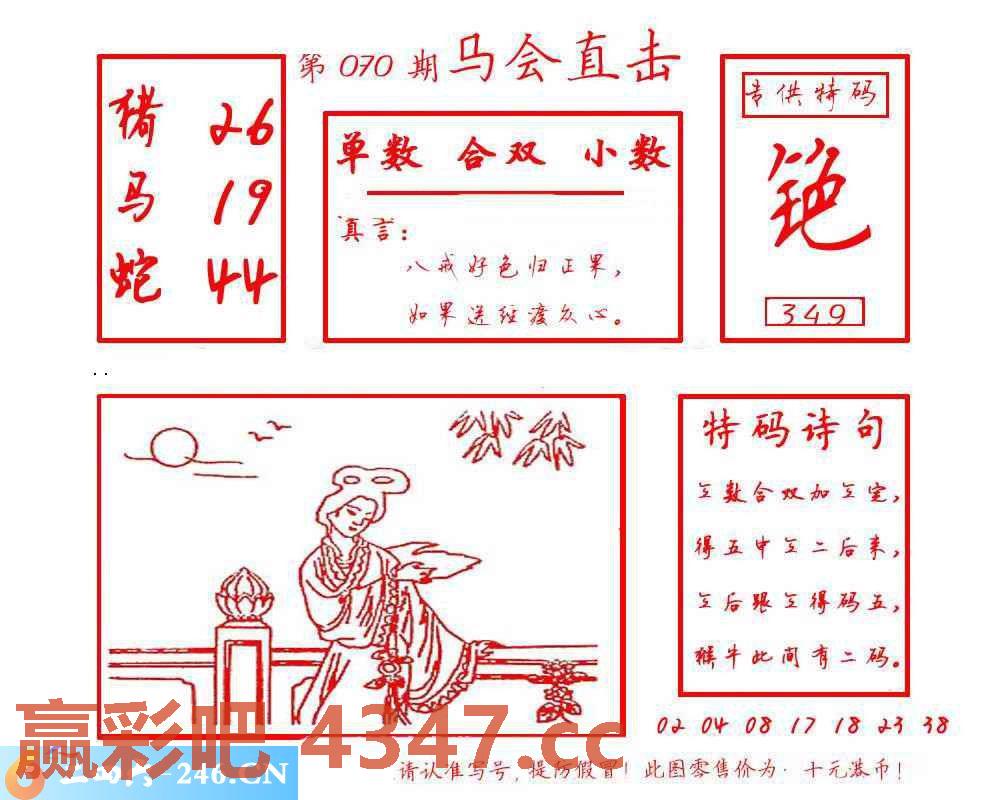 第070期马会直击
猪 26
马 19
蛇 44
单数 合双 小数
真言：
八戒好色归正果，
如果送经渡众心。
专供特码
铯
349
特码诗句
数合双加 定，
得五中 二后来，
后跟 得码五，
猴牛此间有二码。
02 04 08 17 18 23 38
赢彩吧 4347.cc
-246.CN
请认准写号，提防假冒！此图零售价为：十元港币！